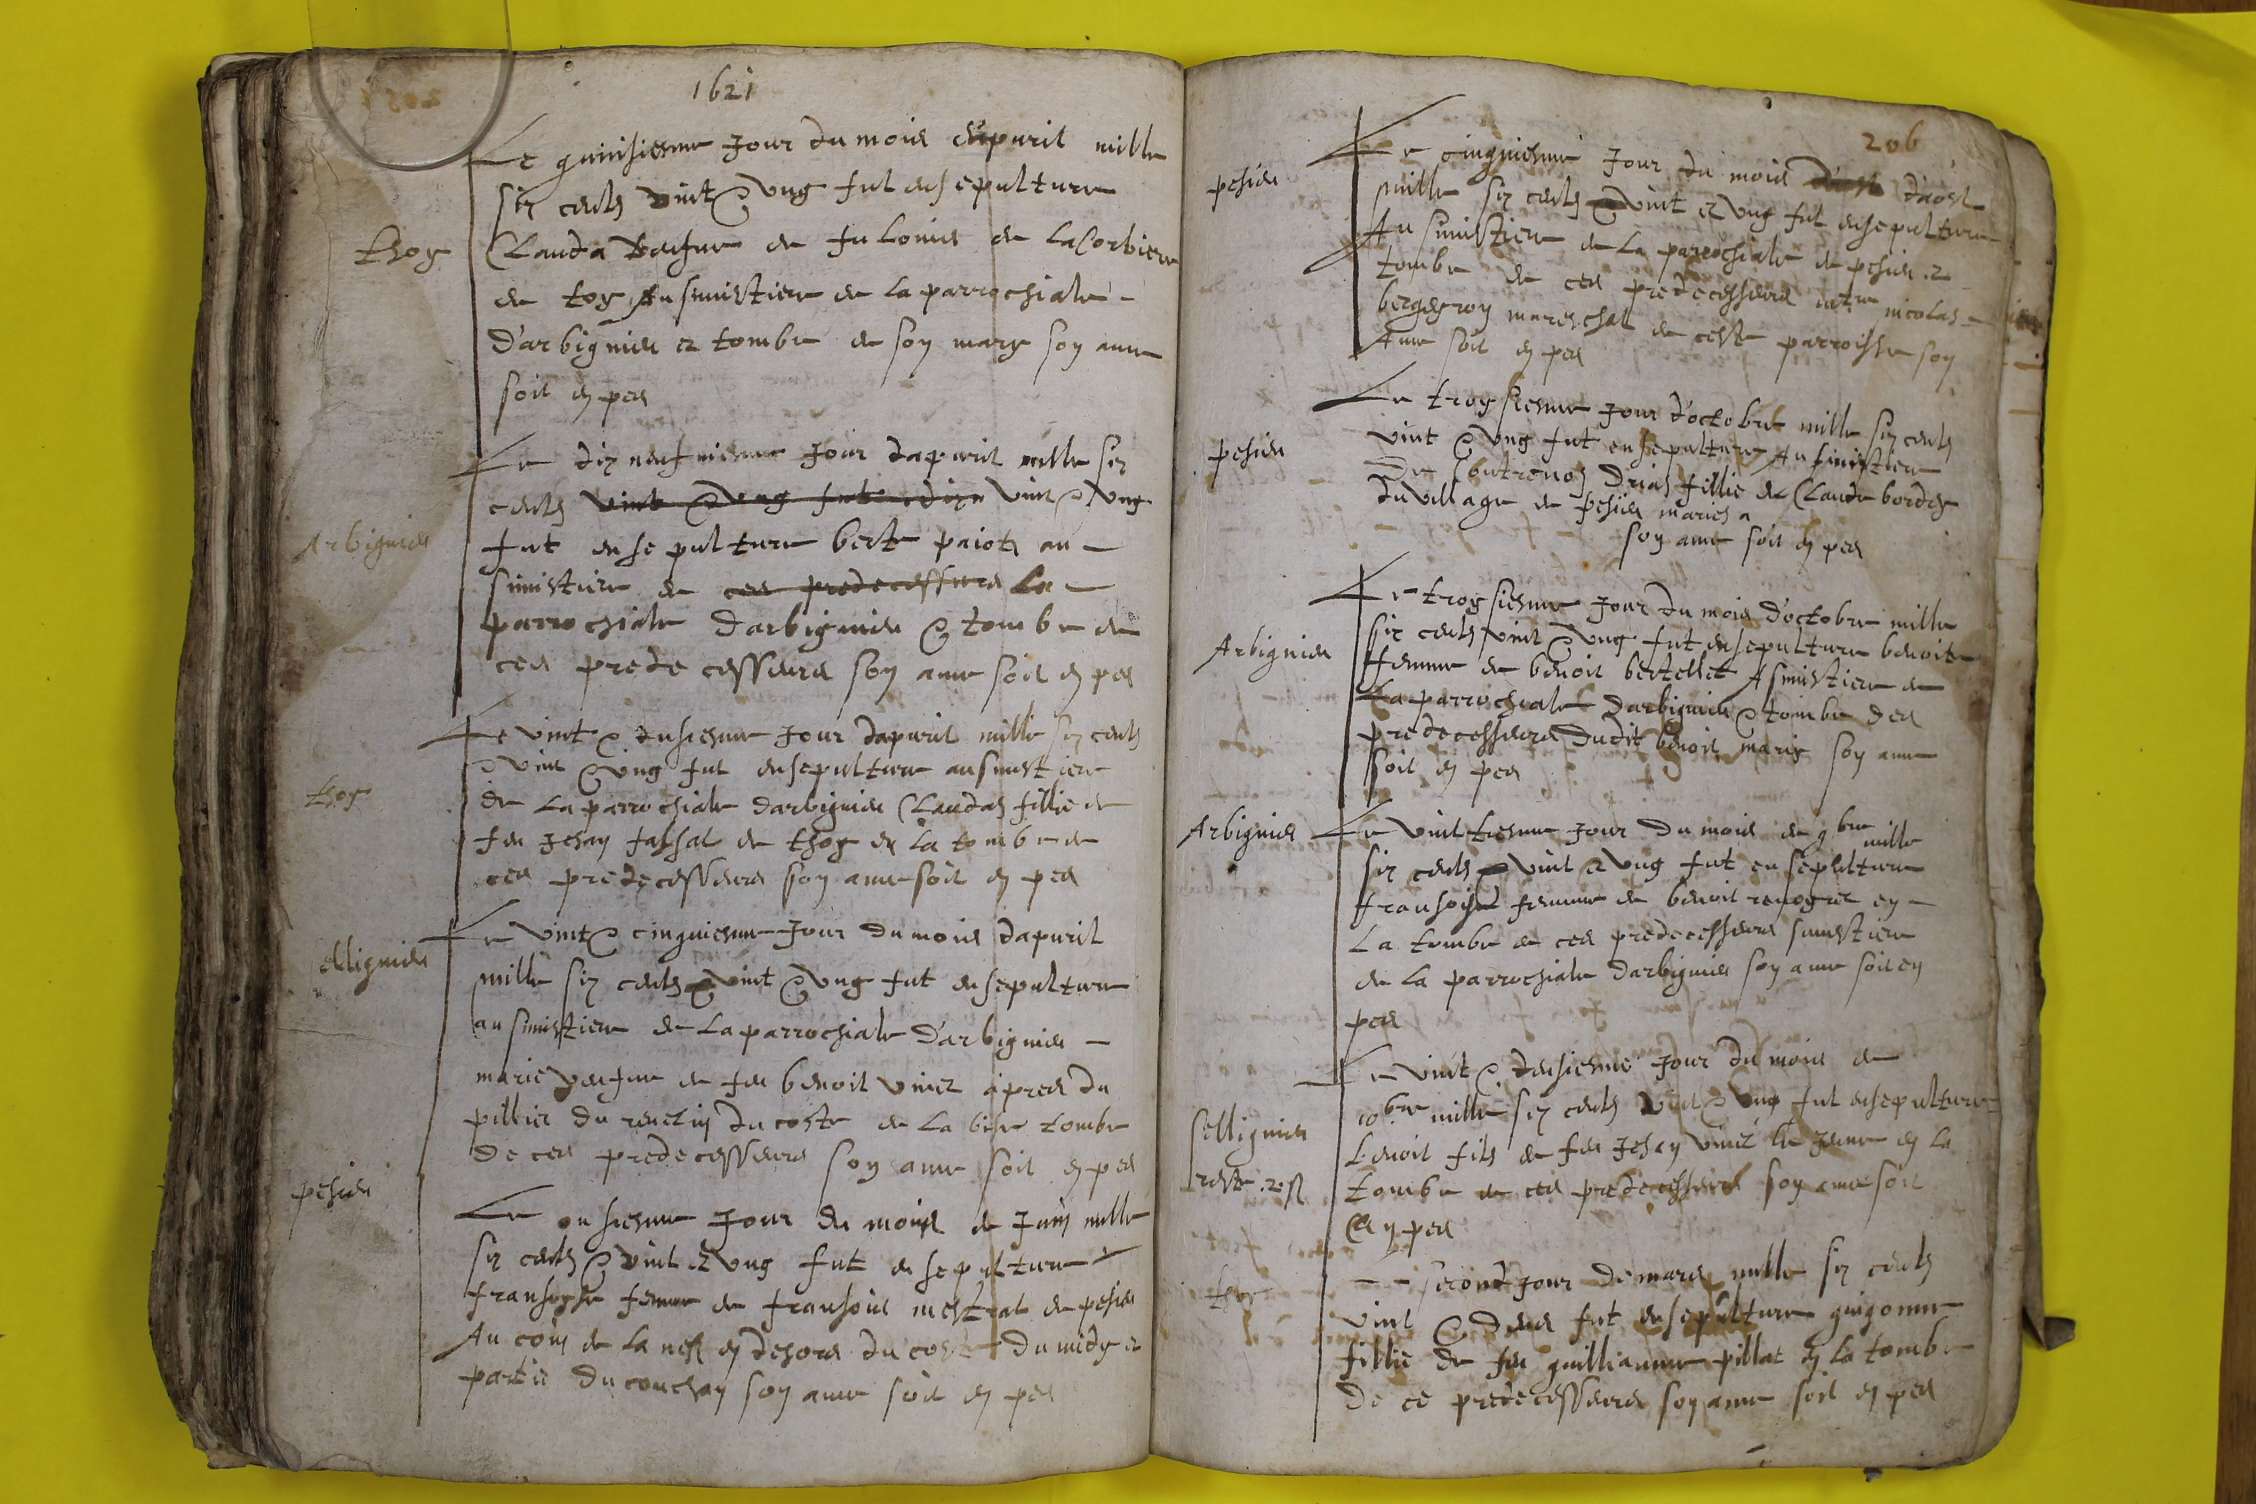 1621
Le quinsiesme Jour du mois d'apvril mille
thoy
six cents vint & ung fut ensepulture
Clauda vesfve de fu Louis de La Corbiere
de toy Au simistiere de la parrochiale
d'arbignieu et tombe de son mary son ame
soit en pes
Le dix neufviesme Jour dapvril mille six
cents vint & ung fut vint & ung
Arbignieu
fut ensepulture berte paiot au
simistiere de ces predecesseurs La
parrochiale darbignieu & tombe de
ces predecesseurs son ame soit en pes
Le vint & dusiesme Jour dapvril mille six cents
& vint & ung fut ensepulture au simistiere
thoy
de La parrochiale darbignieu Claudas fillie de
feu Jehan de thoy en la tombe de
ces predecesseurs son ame soit en pes
Le vint & cinquiesme Jour du mois dapvril
sellignieu
mille six cents & vint & ung fut ensepulture
au simistiere de La parrochiale d'arbignieu
marie vesfve de feu benoit vivier apres du
pillier du revelin du coste de La bise tombe
de ces predecesseurs son ame soit en pes
pesieu
Le onsiesme Jour du mois de Juin mille
six cents & vint et ung fut ensepulture
fransoyse femme de fransois mestrat de pesieu
Au coin de la nef en desors du coste du midy et
partie du couchan son ame soit en pes
206
pesieu
Le cinquiesme Jour du mois d'aost d'aost
mille six cents & vint et ung fut ensepulture
Au simistiere de La parrochiale de pesieu et
tombe de ces predecesseurs nicolas
bergeron mareschal de ceste parroisse son
Ame soit en pes
Le troysiesme Jour d'octobre mille six cents
pesieu
vint & ung fut ensepulture Au simistiere
De Contrevoz fillie de Claude bordes
du village de pesieu maries a
son ame soit en pes
Le troysiesme Jour du mois d'octobre mille
six cents vint & ung fut ensepulture benoite
Arbignieu
femme de benoit bertellet A simistiere de
La parrochiale darbignieu & tombe des
predecesseurs dudit benoit maris son ame
soit en pes
Arbignieu
Le vintiesme Jour du mois de 9bre mille
six cents & vint et ung fut ensepulture
fransoise femme de benoit en
La tombe de ces predecesseurs simistiere
de la parrochiale darbignieu son ame soit en
pes
Le vint & deusiesme Jour du mois de
10bre mille six cents vint & ung fut ensepulture
Sellignieu
benoit fils de feu Jehan vivier le Jeune en la
tombe de ces predecesseurs son ame soit
en pes
second Jour de mars mille six cents
thoy
vint & deus fut ensepulture guigonne
fillie de feu guilliaume pillat en la tombe
de ce predecesseurs son ame soit en pes